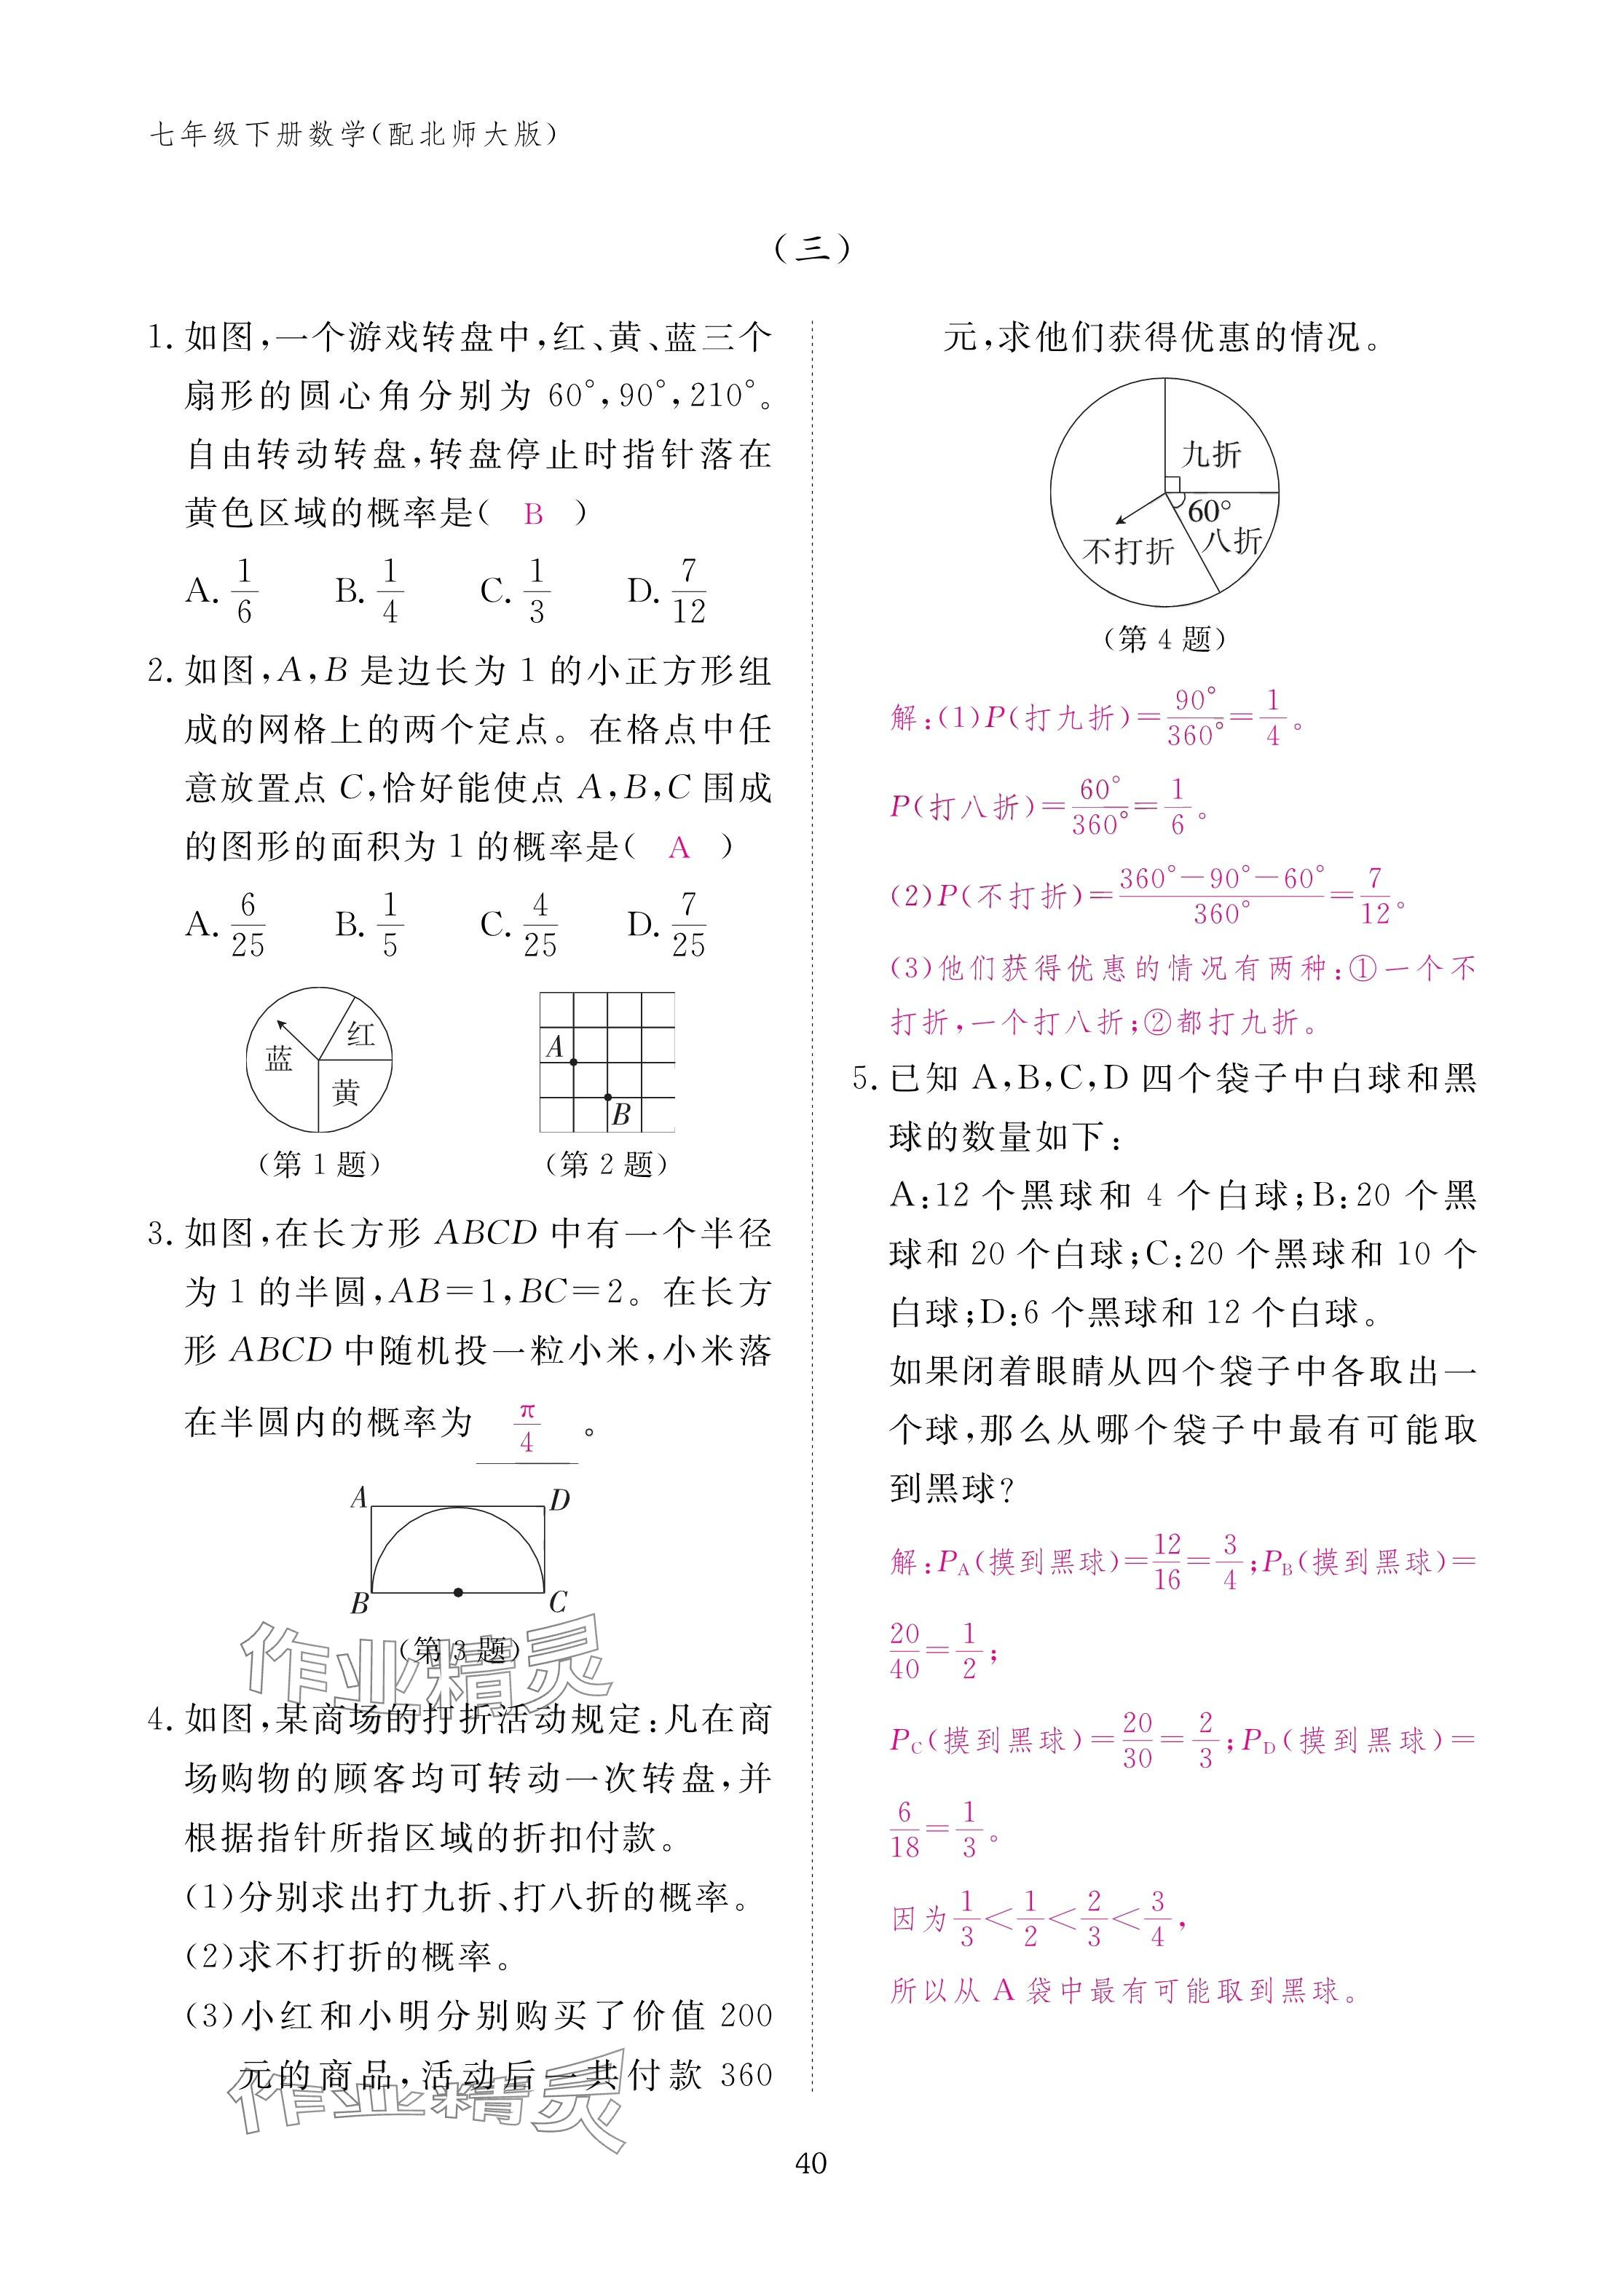 七年级下册数学(配北师大版)
(三)
1. 如图,一个游戏转盘中,红、黄、蓝三个
扇形的圆心角分别为 60°,90°,210°。
自由转动转盘,转盘停止时指针落在
黄色区域的概率是( B )
A. 1/6 B. 1/4 C. 1/3 D. 7/12
2. 如图,A,B 是边长为 1 的小正方形组
成的网格上的两个定点。在格点中任
意放置点 C,恰好能使点 A,B,C 围成
的图形的面积为 1 的概率是( A )
A. 6/25 B. 1/5 C. 4/25 D. 7/25
蓝 红
黄
A
B
(第 1 题) (第 2 题)
3. 如图,在长方形 ABCD 中有一个半径
为 1 的半圆,AB=1,BC=2。在长方
形 ABCD 中随机投一粒小米,小米落
在半圆内的概率为 π/4 。
A D
B C
(第 3 题)
作业精灵
4. 如图,某商场的打折活动规定:凡在商
场购物的顾客均可转动一次转盘,并
根据指针所指区域的折扣付款。
(1)分别求出打九折、打八折的概率。
(2)求不打折的概率。
(3)小红和小明分别购买了价值 200
元的商品,活动后一共付款 360
作业精灵
元,求他们获得优惠的情况。
九折
60°
不打折 八折
(第 4 题)
解:(1)P(打九折)=90°/360°=1/4。
P(打八折)=60°/360°=1/6。
(2)P(不打折)=(360°-90°-60°)/360°=7/12。
(3)他们获得优惠的情况有两种:①一个不
打折,一个打八折;②都打九折。
5. 已知 A,B,C,D 四个袋子中白球和黑
球的数量如下:
A:12 个黑球和 4 个白球;B:20 个黑
球和 20 个白球;C:20 个黑球和 10 个
白球;D:6 个黑球和 12 个白球。
如果闭着眼睛从四个袋子中各取出一
个球,那么从哪个袋子中最有可能取
到黑球?
解:P_A(摸到黑球)=12/16=3/4;P_B(摸到黑球)=
20/40=1/2;
P_C(摸到黑球)=20/30=2/3;P_D(摸到黑球)=
6/18=1/3。
因为1/3<1/2<2/3<3/4,
所以从 A 袋中最有可能取到黑球。
40